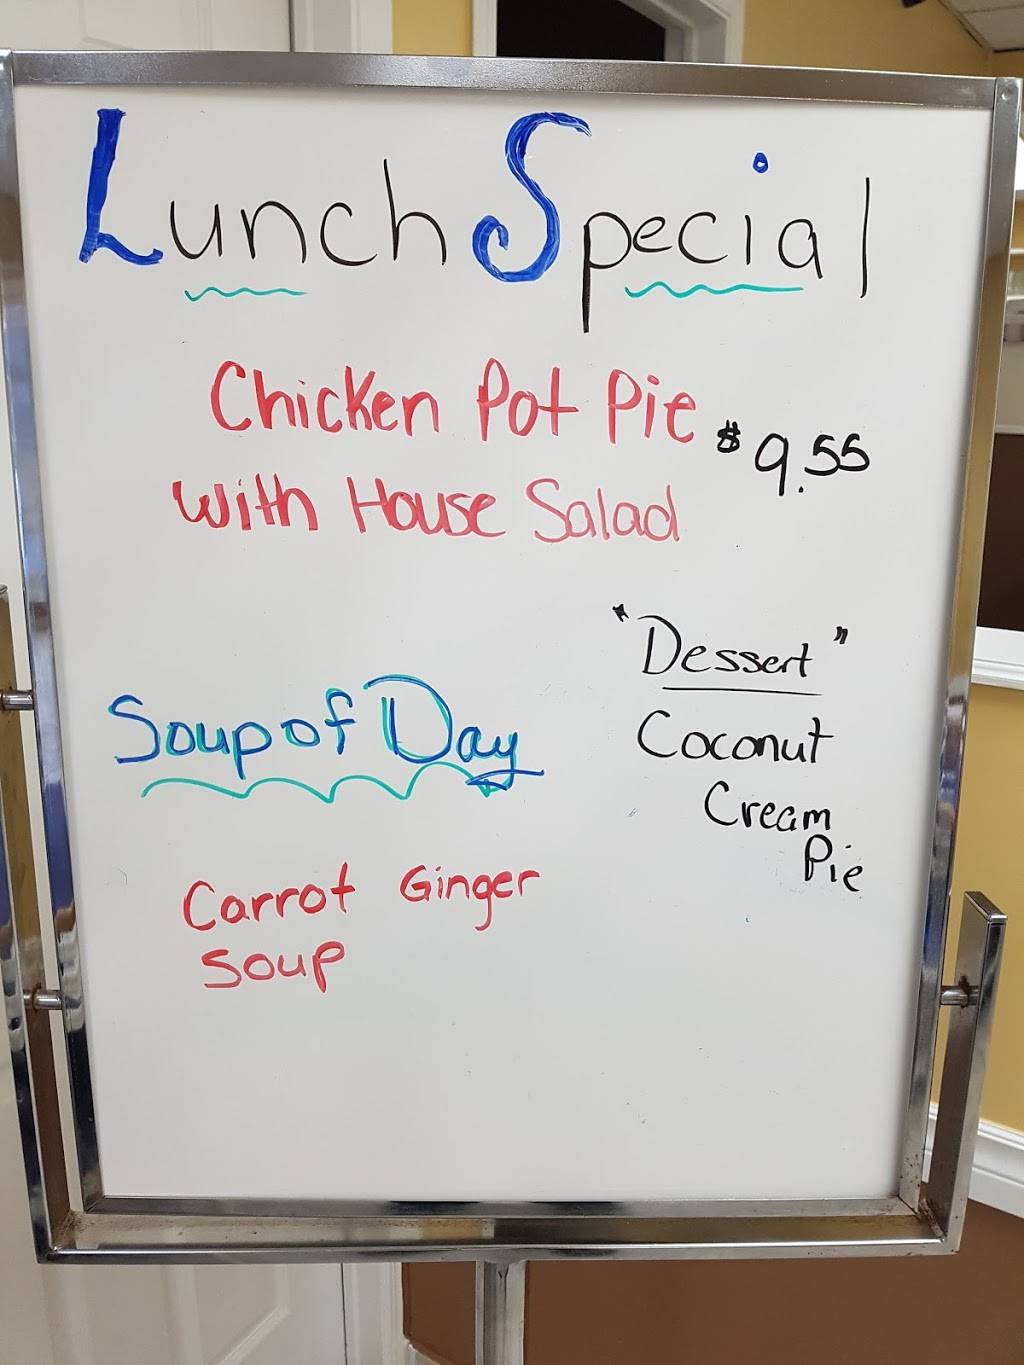 Lunch Special
Chicken Pot Pie $9.55
with House Salad
"Dessert"
Coconut
Cream
Pie
Soup of Day
Carrot Ginger
Soup